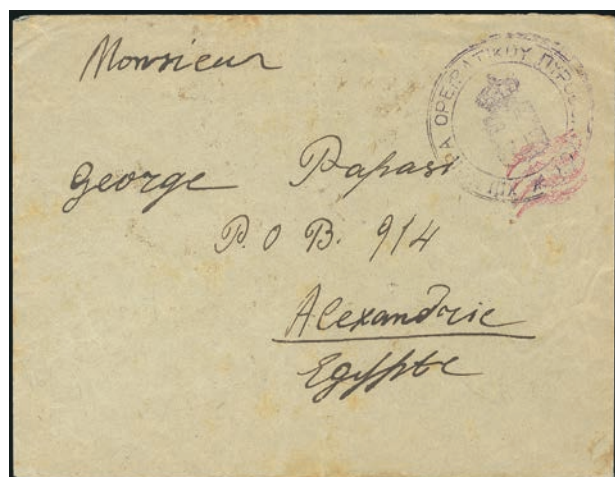 Monsieur
George Papasi
P. O B. 914
Alexandrie
Egypte
ΟΡΕΙΒΑΤΙΚΟΥ ΠΥΡΟΒ